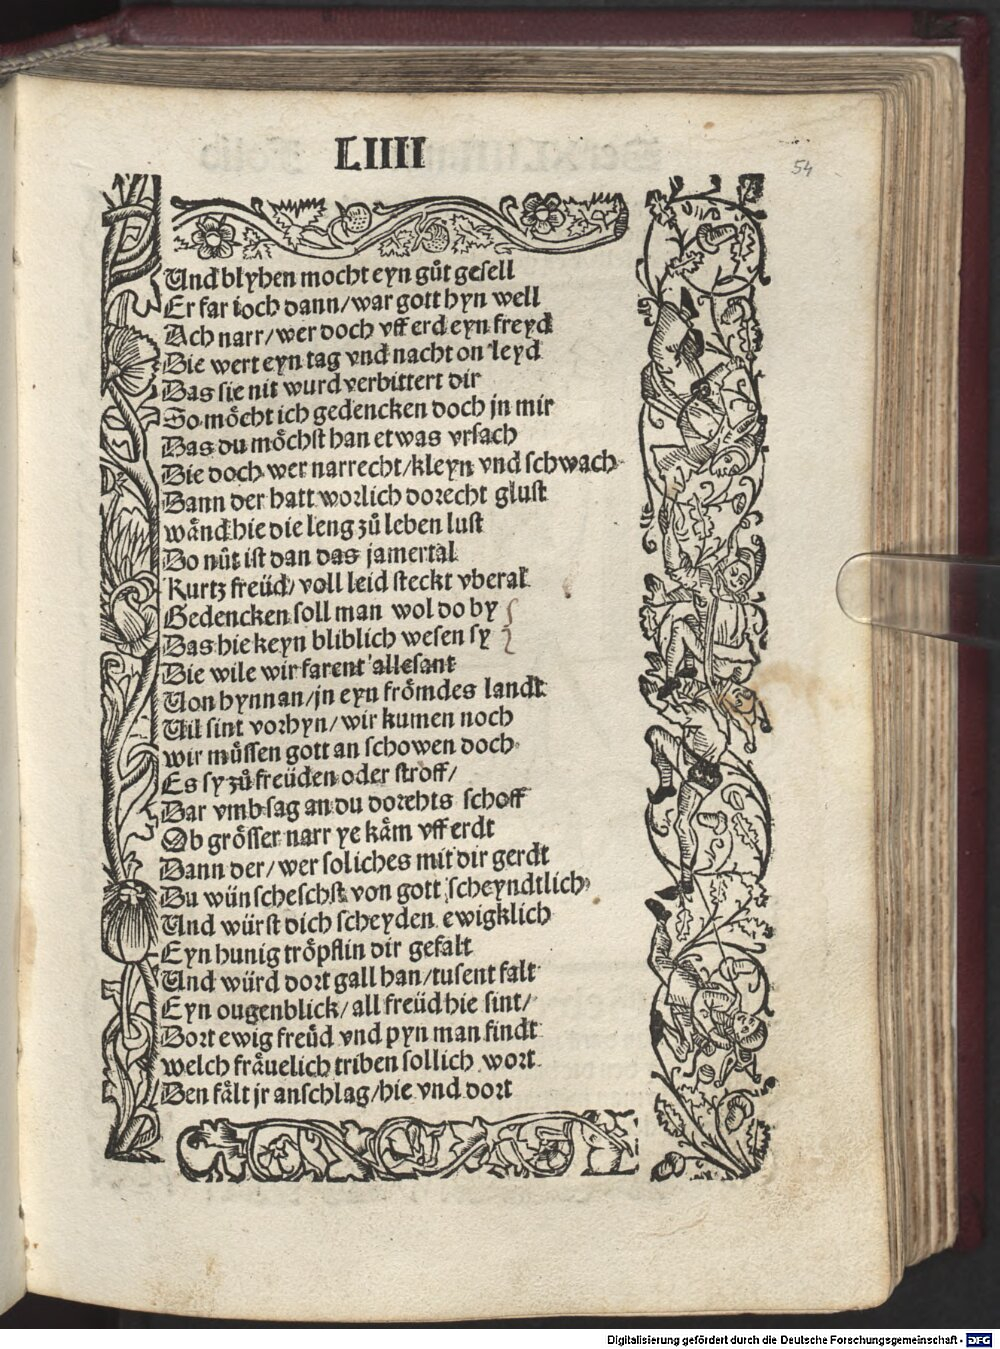 LIIII
54
Und blyben mocht eyn gůt gesell
Er far ioch dann/war gott hyn well
Ach narr/wer doch vff erd eyn freyd
Die wert eyn tag vnd nacht on leyd
Das sie nit wurd verbittert dir
So möcht ich gedencken doch jn mir
Das du möchst han etwas vrsach
Die doch wer narrecht/kleyn vnd schwach
Dann der hatt worlich dorecht glust
wånd hie die leng zů leben lust
Do nüt ist dan das jamertal
Kurtz freüd/voll leid steckt vberal
Gedencken soll man wol do by
Das hie keyn bliblich wesen sy
Die wile wir farent allesant
Von hynnan/jn eyn frömdes landt
Vil sint vorhyn/wir kumen noch
wir müssen gott an schowen doch
Es sy zů freüden oder stroff/
Dar vmb sag an du dorehts schoff
Ob grösser narr ye kåm vff erdt
Dann der/wer soliches mit dir gerdt
Du wünscheschst von gott scheyndtlich
Und würst dich scheyden ewigklich
Eyn hunig tröpflin dir gefalt
Und würd dort gall han/tusent falt
Eyn ougenblick/all freüd hie sint/
Dort ewig freüd vnd pyn man findt
welch fråuelich triben sollich wort
Den fålt jr anschlag/hie vnd dort
Digitalisierung gefördert durch die Deutsche Forschungsgemeinschaft - DFG